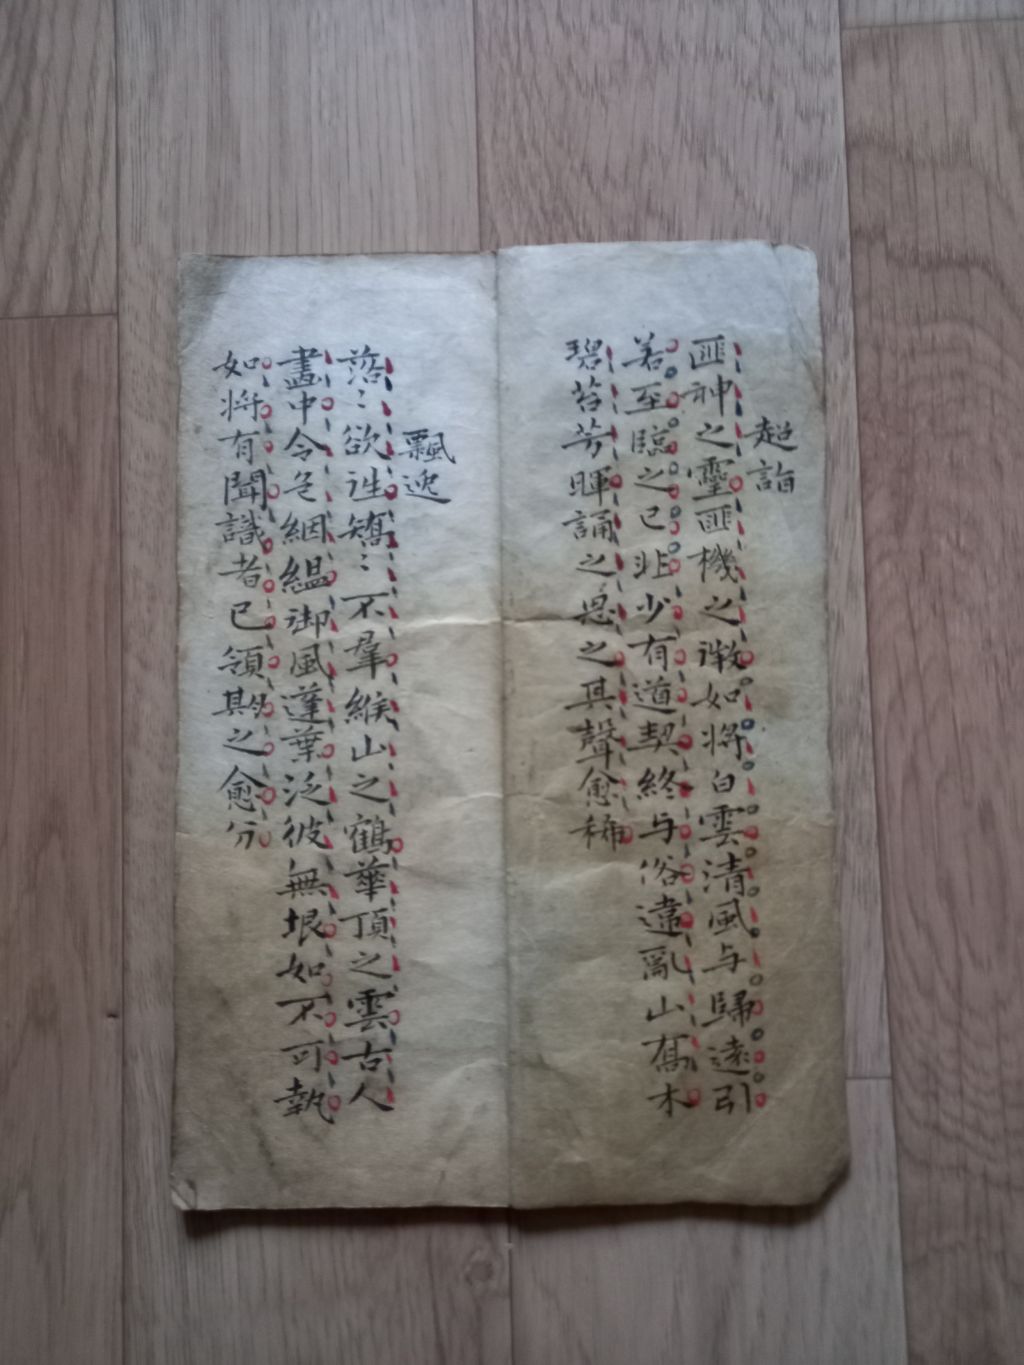 超詣
匪神之靈匪機之微如將白雲清風与歸遠引
若至臨之已非少有道契終与俗違亂山喬木
碧苔芳暉誦之思之其聲愈稀
飄逸
落〻欲往矯〻不羣緱山之鶴華頂之雲古人
畫中令色絪緼御風蓬葉泛彼無垠如不可執
如將有聞識者已領期之愈分